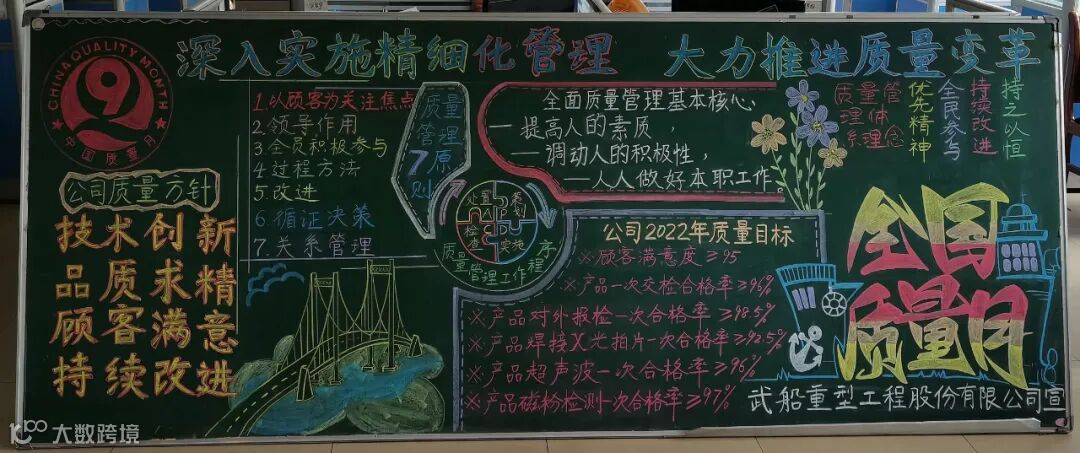 深入实施精细化管理 大力推进质量变革
CHINA QUALITY MONTH
中国质量月
公司质量方针
技术创新
品质求精
顾客满意
持续改进
1.以顾客为关注焦点
2.领导作用
3.全员积极参与
4.过程方法
5.改进
6.循证决策
7.关系管理
质量管理7原则
全面质量管理基本核心、
一提高人的素质，
一调动人的积极性，
一人人做好本职工作。
处置
策划
检查
实施
质量管理工作程序
公司2022年质量目标
※顾客满意度≥95
※产品一次交检合格率≥96%
※产品对外报检一次合格率≥98.5%
※产品焊接X光拍片一次合格率≥92.5%
※产品超声波一次合格率≥96%
※产品磁粉检测一次合格率≥97%
质量管理体系理念
优先精神
全民参与
持续改进
持之以恒
全国
质量月
武船重型工程股份有限公司宣
大数跨境